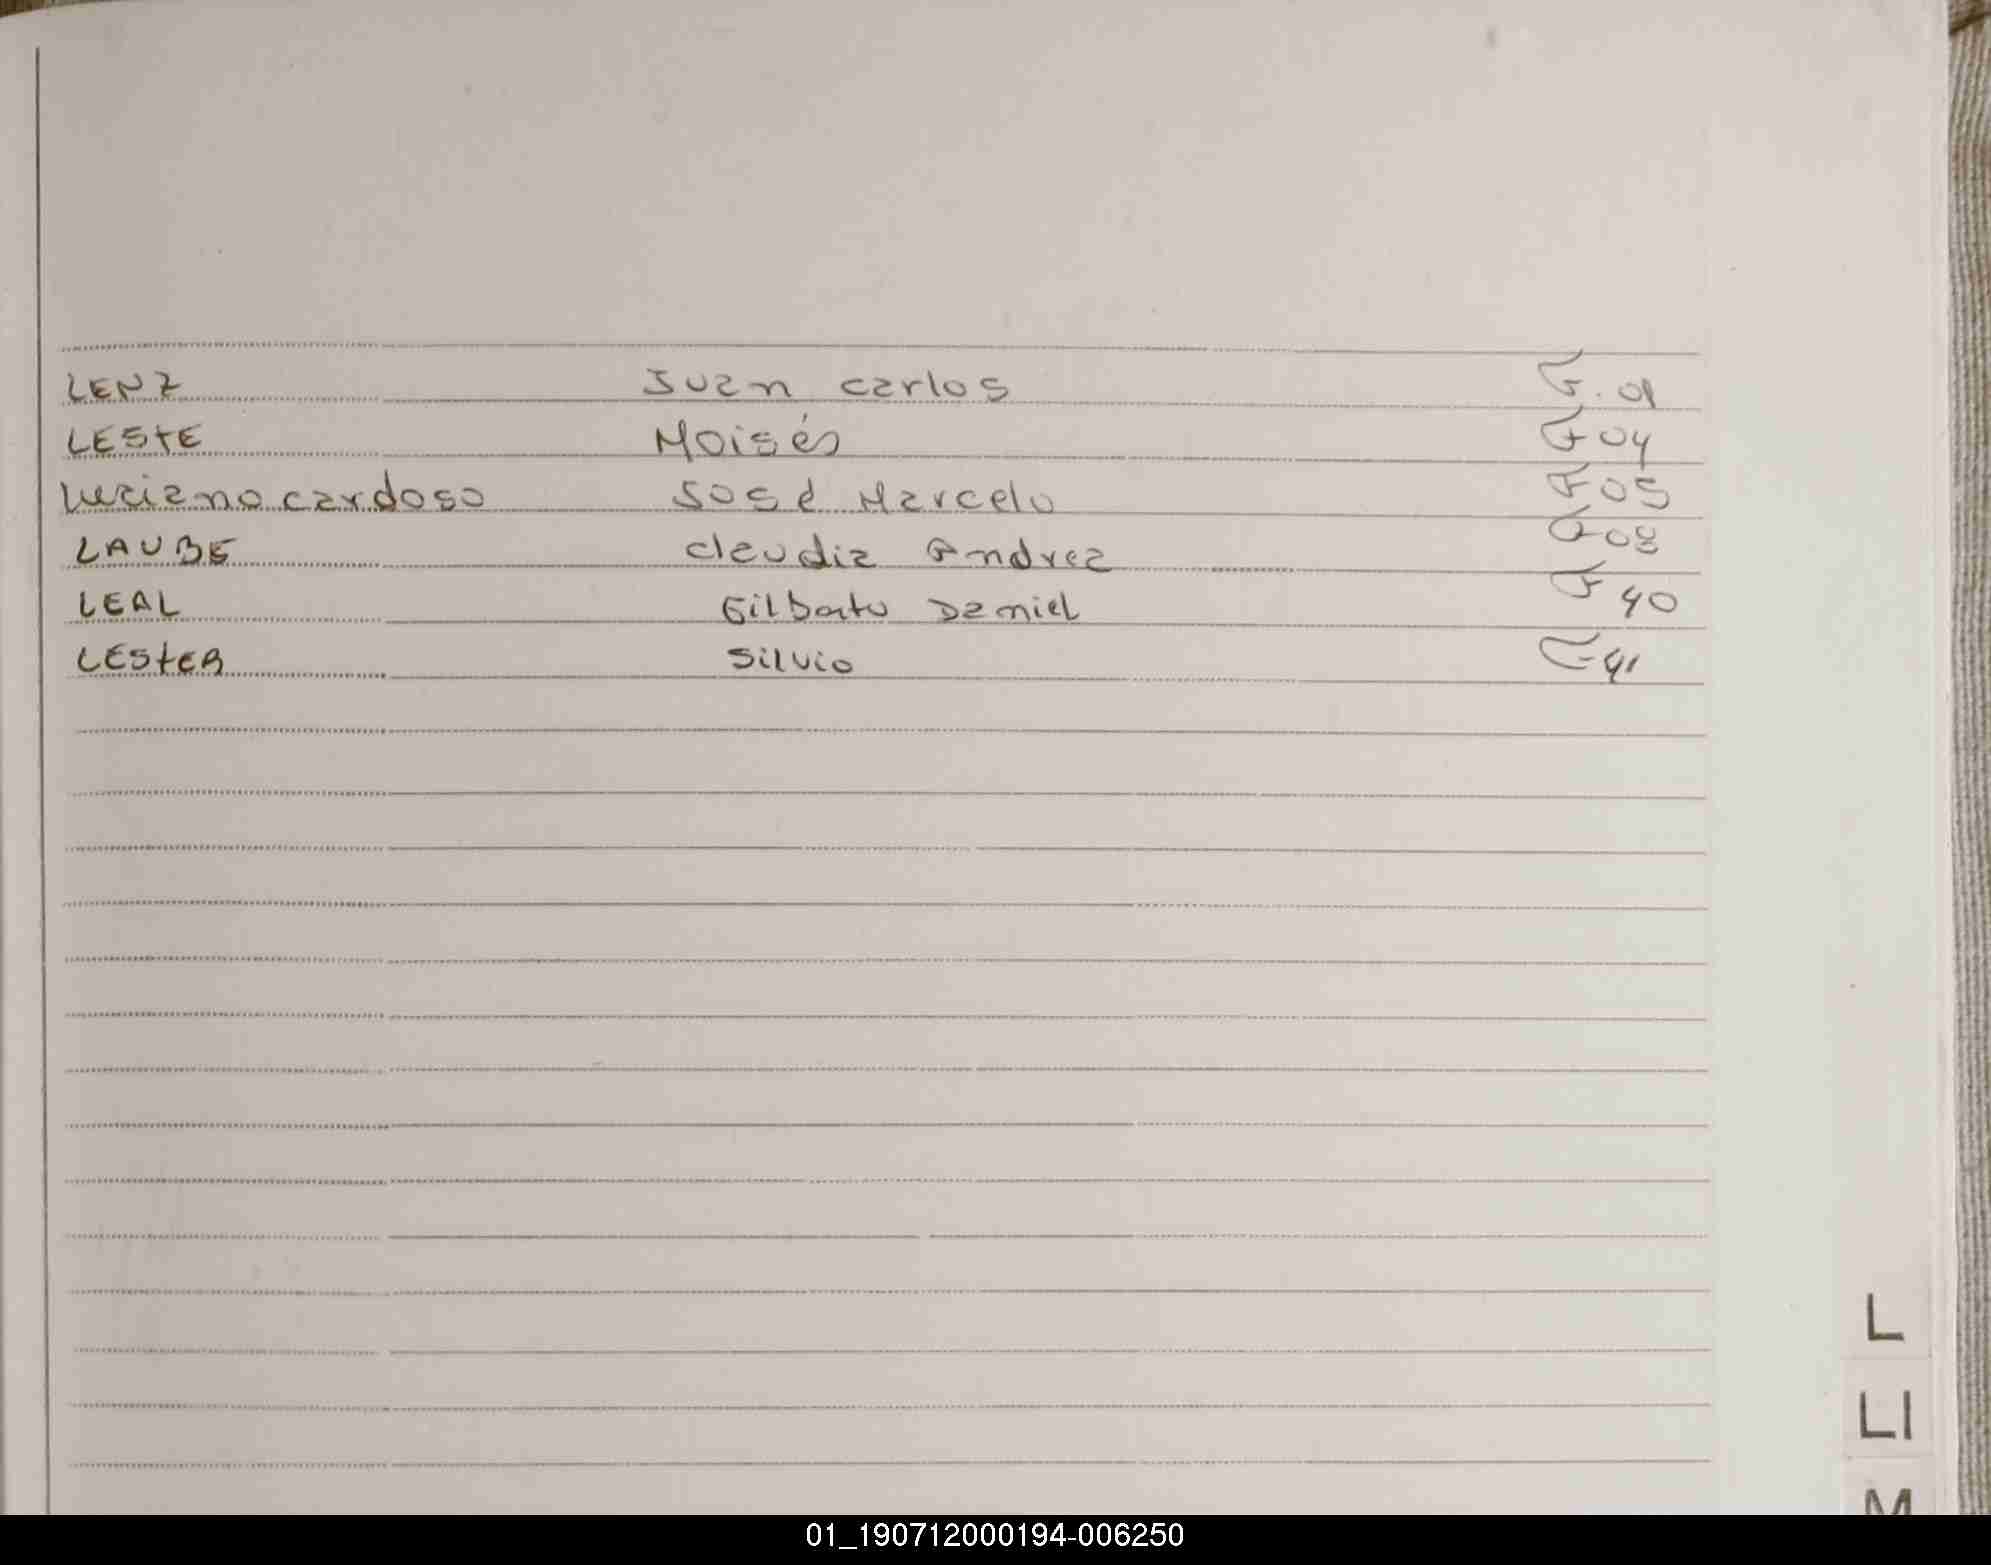 LENZ Juan carlos F. 01
LESTE Moisés F 04
Luciano cardoso José Marcelo F 05
LAUBE claudia Andrea F 08
LEAL Gilberto Daniel F 40
LESTER Silvio F 41
L
LI
M
01_190712000194-006250